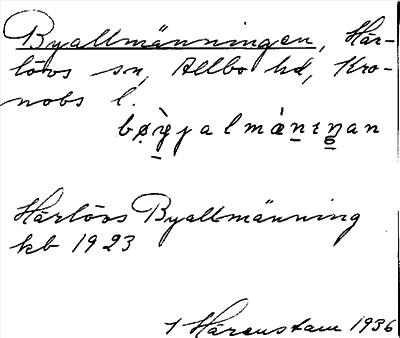 Byallmänningen, Här-
lövs sn, Allbo hd, Kro-
nobs l.
Härlövs Byallmänning
kb 1923
1 Härenstam 1936